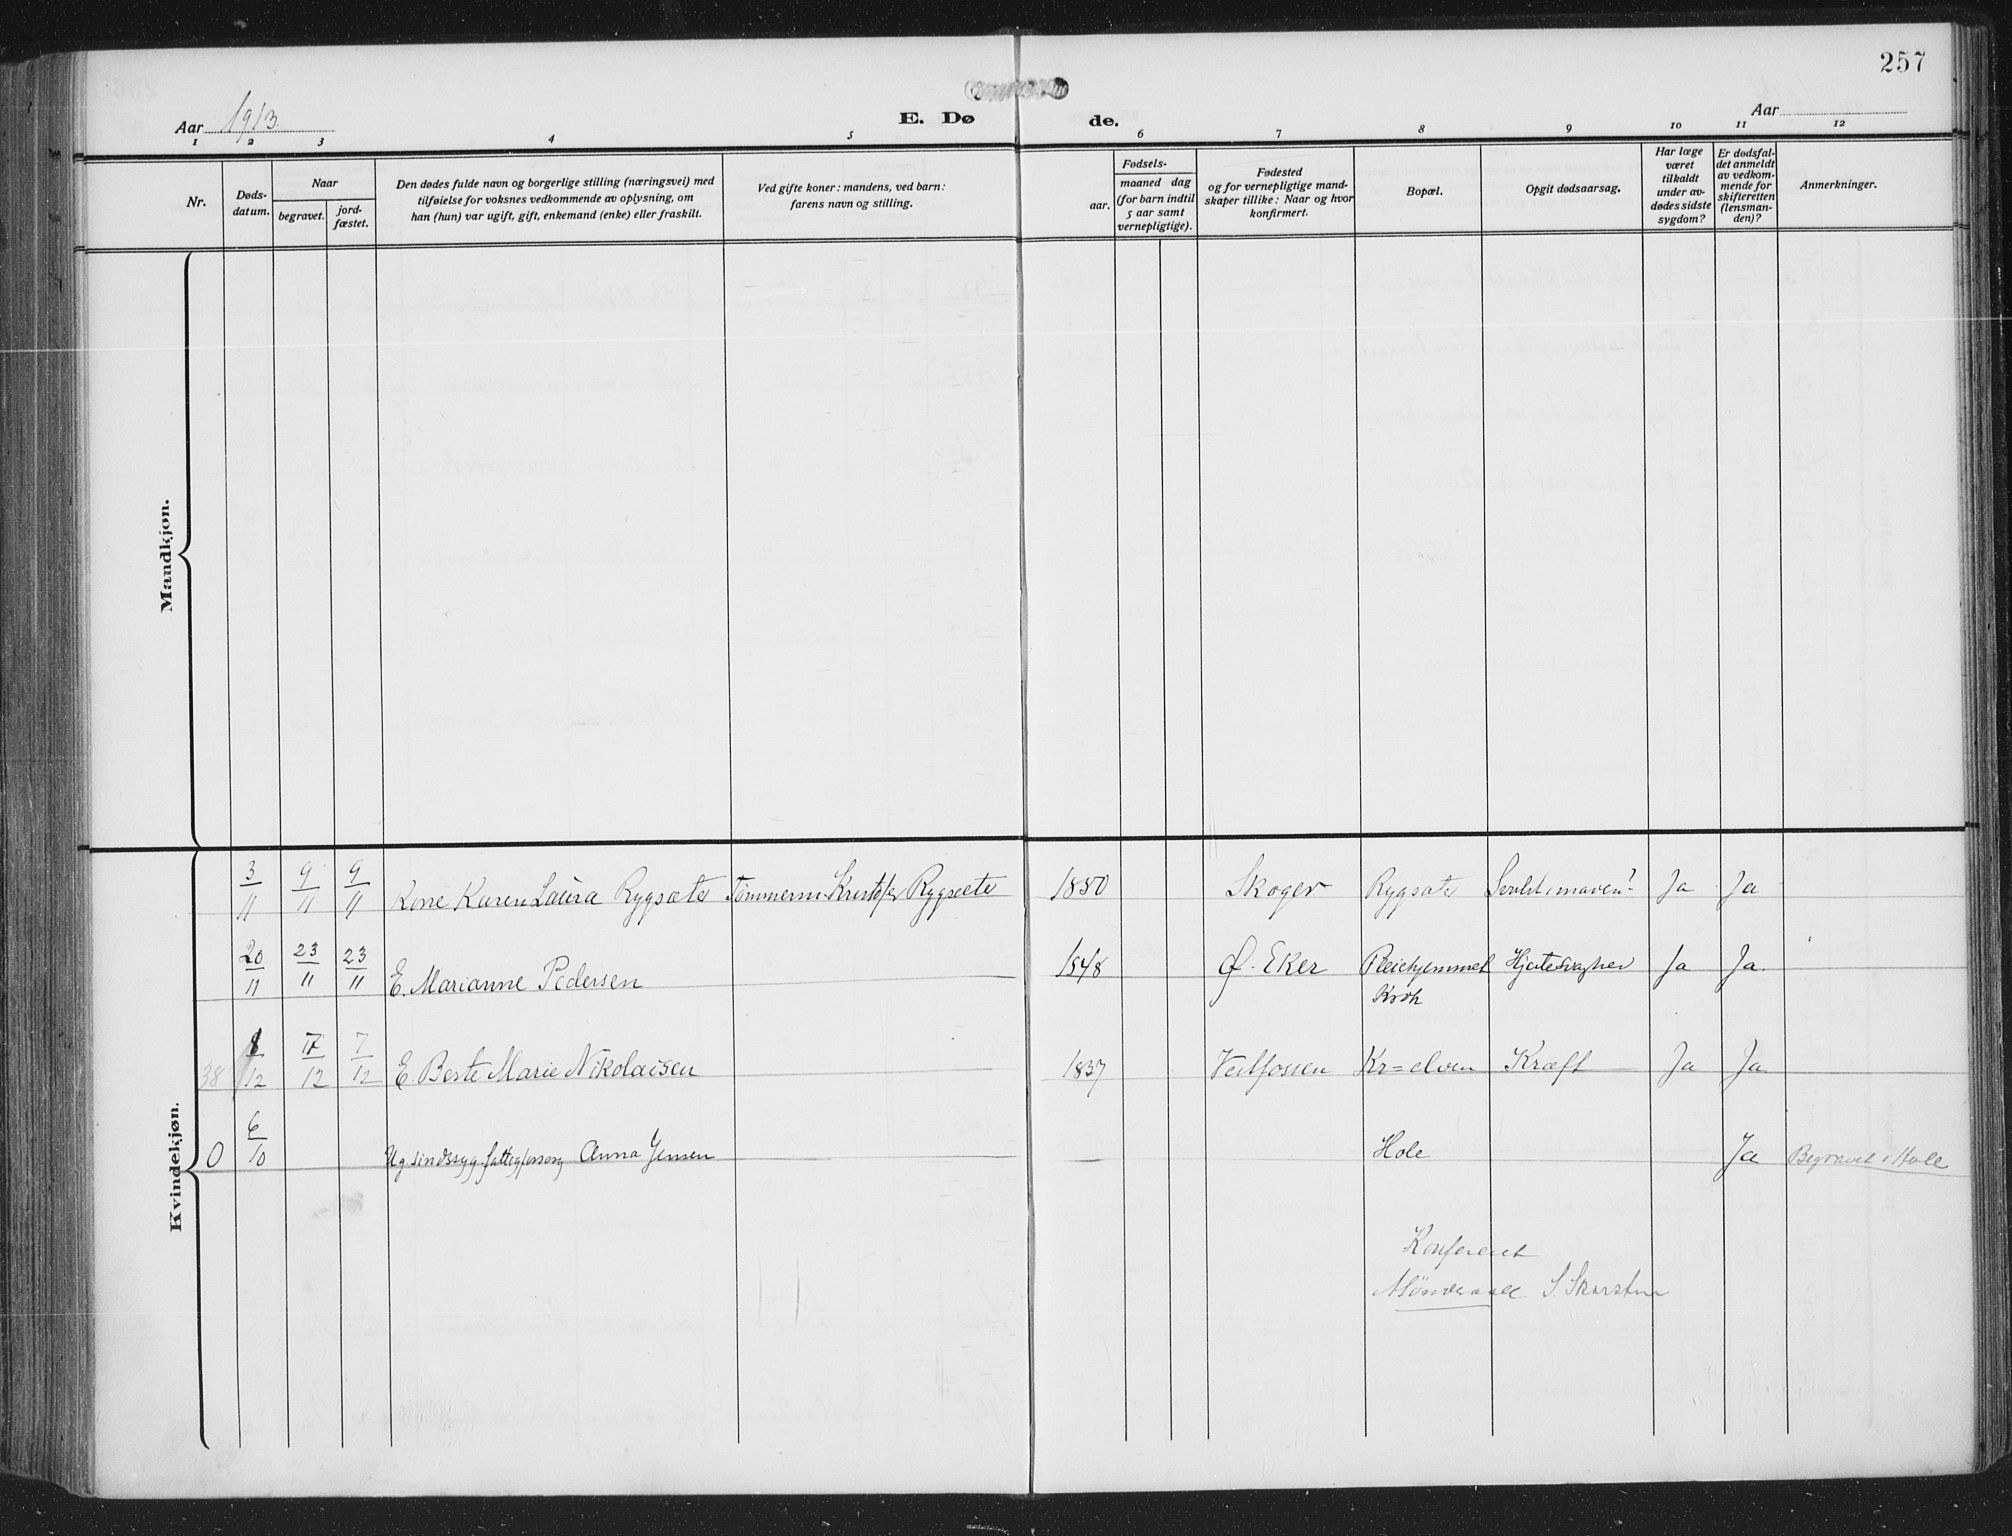 257
Aar 1913
E. Dø
de.
Aar
1 2 3 4 5 6 7 8 9 10 11 12
Nr.
Døds-
datum.
Naar
begravet.
jord-
fæstet.
Den dødes fulde navn og borgerlige stilling (næringsvei) med
tilføielse for voksnes vedkommende av oplysning, om
han (hun) var ugift, gift, enkemand (enke) eller fraskilt.
Ved gifte koner: mandens, ved barn:
farens navn og stilling.
Fødsels-
aar.
maaned dag
(for barn indtil
5 aar samt
vernepligtige).
Fødested
og for vernepligtige mand-
skaper tillike: Naar og hvor
konfirmert.
Bopæl.
Opgit dødsaarsag.
Har læge
været
tilkaldt
under av-
dødes sidste
sygdom?
Er dødsfal-
det anmeldt
av vedkom-
mende for
skifteretten
(lensman-
den)?
Anmerkninger.
Mandkjøn.
Kvindekjøn.
3/11 9/11 9/11 Kone Karen Laura Rygsæter Tømmerm. Kristofer Rygsæter 1850 Skoger Rygsæter Svulst i maven? Ja Ja
20/11 23/11 23/11 E. Marianne Pedersen 1848 Ø. Eker Pleiehjemmet Hjertesvaghet Ja Ja.
Kroh
38 1/12 7/12 7/12 E. Berte Marie Nikolaisen 1837 Vestfossen Kr=elven Kræft Ja Ja
0 6/10 Ug. sindssyg fattigforsørg Anna Jensen Hole Ja Begravet i Hole
Konfereret
S. Skarsten